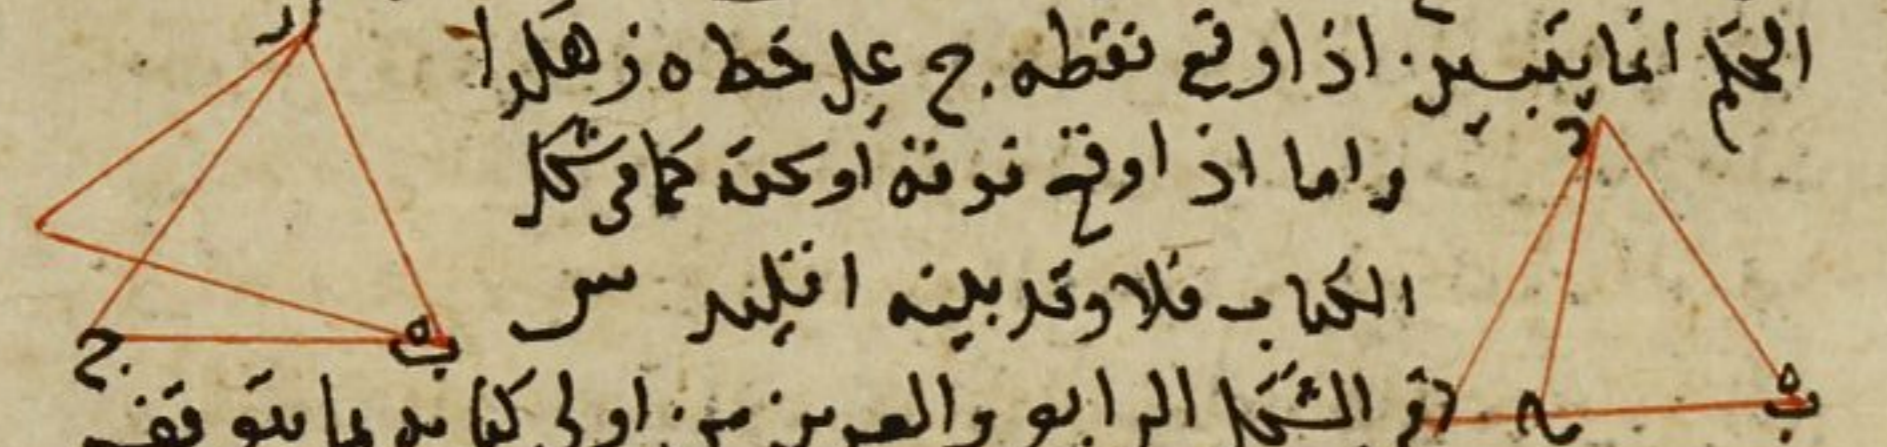 الحكم انما يتبين اذا وقع نقطه ج علي خط ه ز هكذا
واما اذا وقع فوقه او تحته كما في شكل
الكتاب فلا وقد بينه اقليدس
في الشكل الرابع والعشرين من اولي كتابه بما يتوقف
د
ه
ب
ا
ه
ب
ج